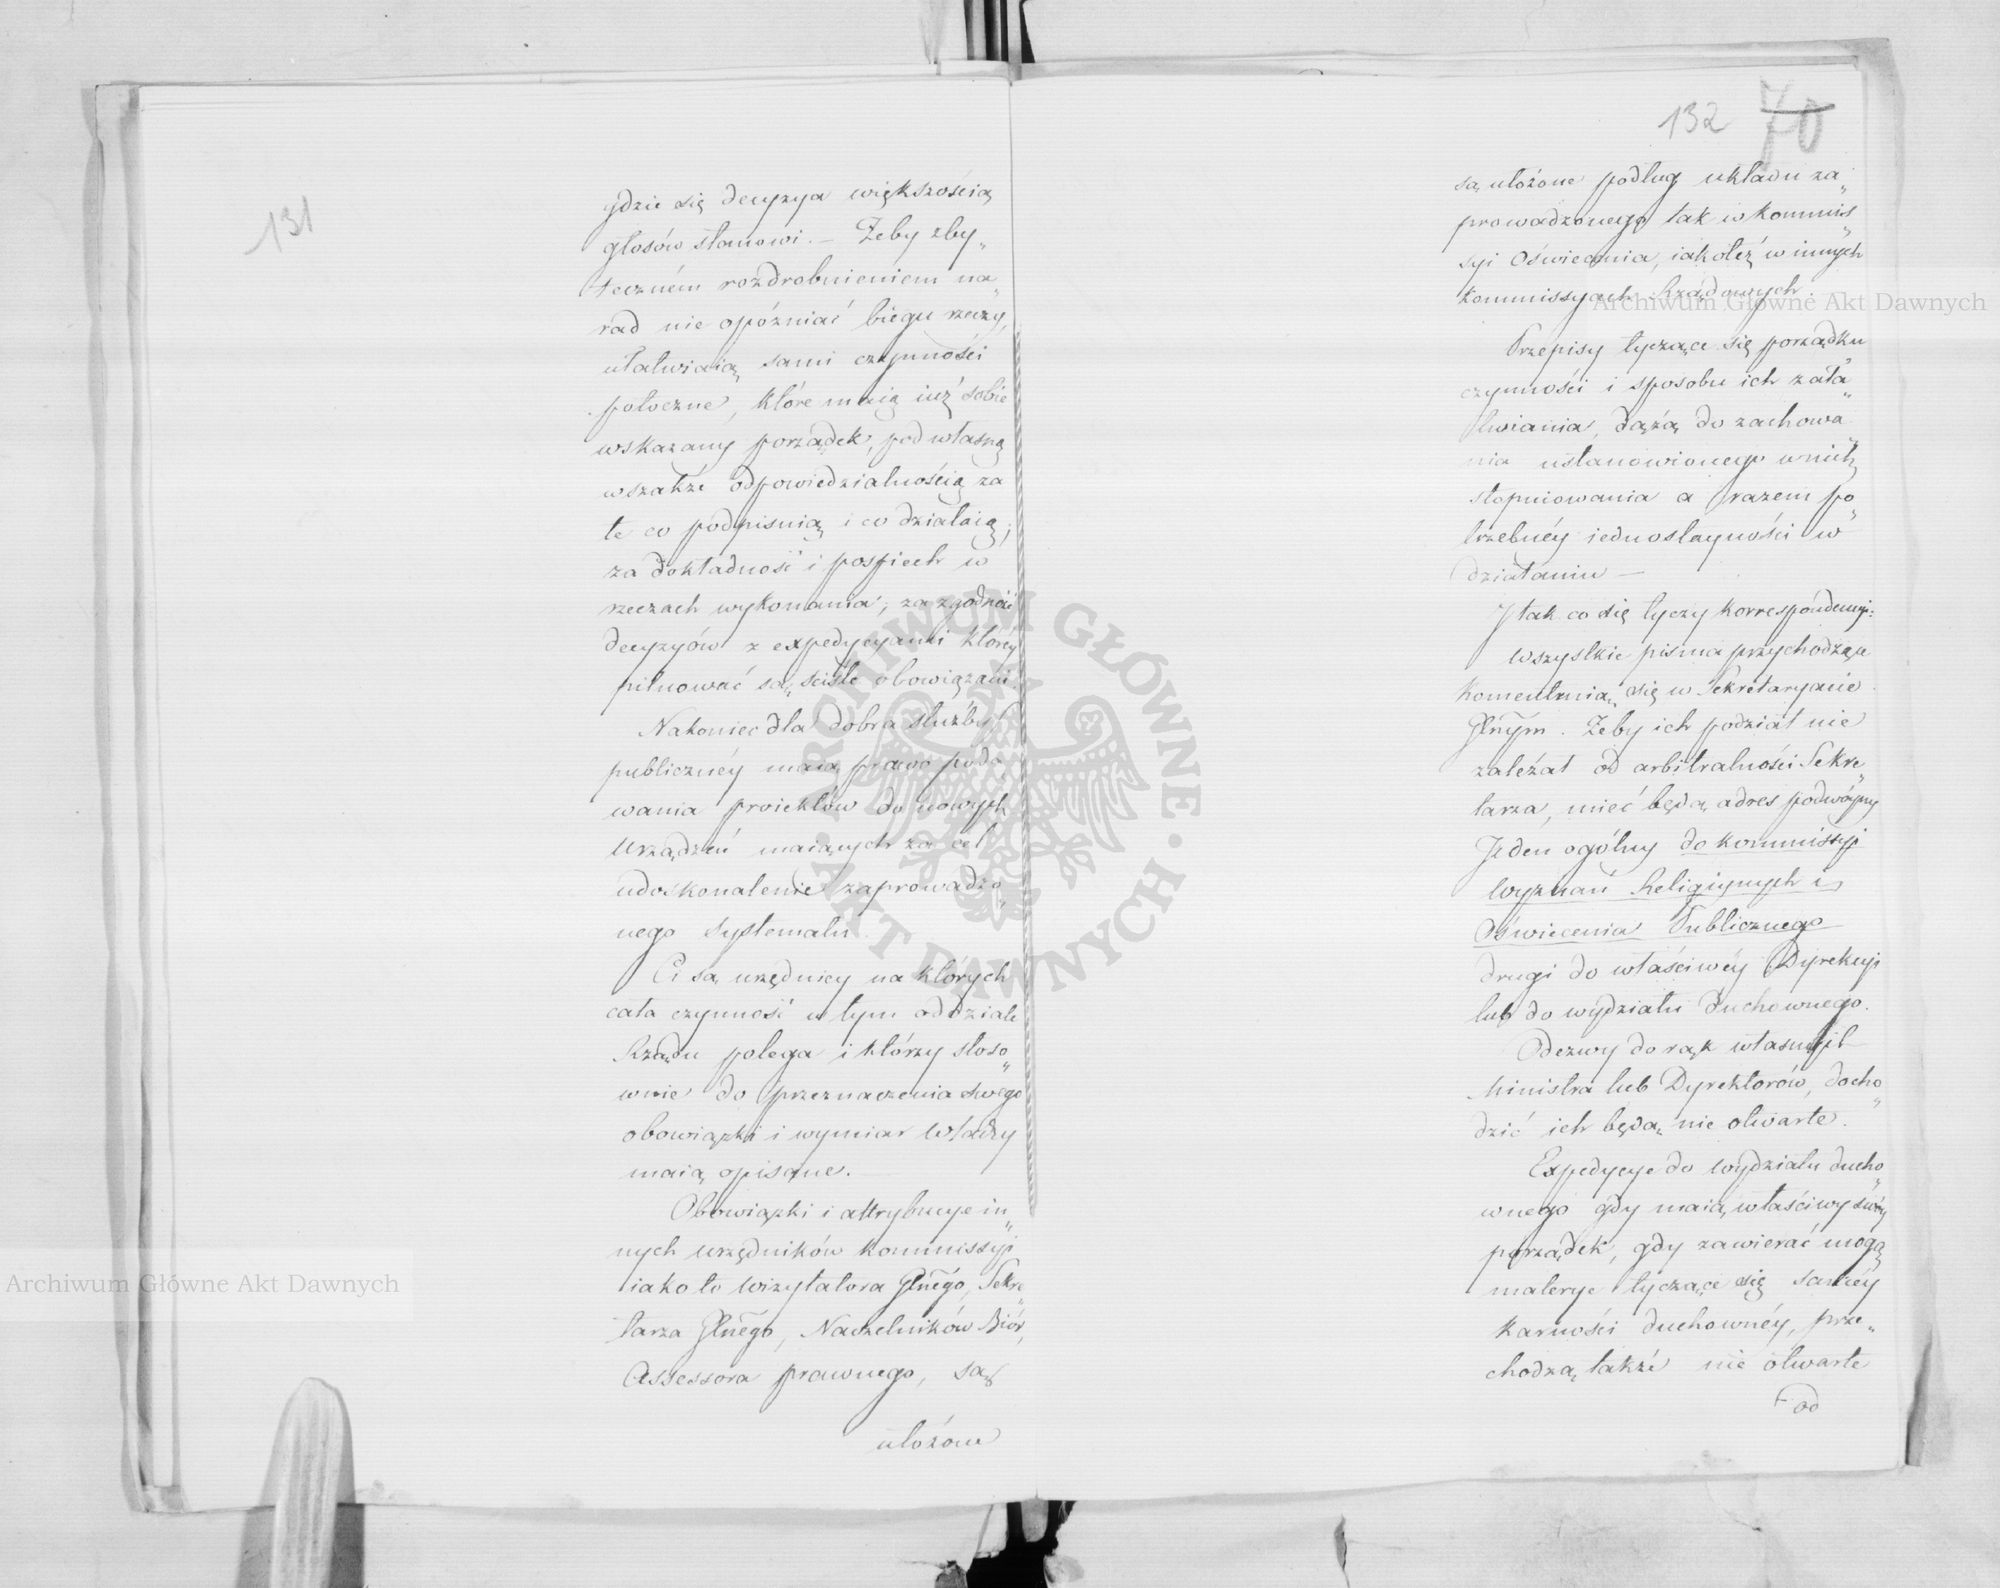 131
gdzie się decyzya większością
głosów stanowi. — Żeby zby„
teczném rozdrobnieniem na„
rad nie opóźniać biegu rzeczy,
ułatwiaią sami czynności
potoczne, które maią iuż sobie
wskazany porządek, pod własną
wszakże odpowiedzialnością za
te co podpisuią i co działaią;
za dokładność i pospiech w
rzeczach wykonania, za zgodność
decyzyów z expedycyami któréy
pilnować są ściśle obowiązani.
Nakoniec dla dobra służby
publicznéy maią prawo poda„
wania proiektów do nowych
Urządzeń maiących za cel
udoskonalenie zaprowadzo„
nego systematu.
Ci są urzędnicy na których
cała czynność w tym oddziale
Rządu polega i którzy stoso„
wnie do przeznaczenia swego
obowiązki i wymiar władzy
maią opisane. —
Obowiązki i attrybucye in„
nych urzędników Kommissyi
iako to Wizytatora Głneģo, Sekre„
tarza Głnego, Naczelników Biór,
Assessora prawnego, są
ułożone
132 70
są ułożone podług układu za„
prowadzonego tak w Kommis„
syi Oświecenia, iakoteż w innych
Kommissyach Rządowych. —
Przepisy tyczące się porządku
czynności i sposobu ich zała„
twiania, dążą do zachowa„
nia ustanowionego w nich
stopniowania a razem po„
trzebnéy iednostayności w
działaniu —
I tak co się tyczy korrespondencyi:
Wszystkie pisma przychodzące
Komentuią się w Sekretaryacie
Głnym. Żeby ich podział nie
zależał od arbitralności Sekre„
tarza, mieć będą adres podwóyny
Jeden ogólny do Kommissyi
Wyznań Religiynych i
Oświecenia Publicznego
drugi do właściwéy Dyrekcyi
lub do wydziału Duchownego.
Odezwy do rąk własnych
Ministra lub Dyrektorów, docho„
dzić ich będą nie otwarte.
Expedycye do wydziału ducho„
wnego gdy maią właściwy swóy
porządek, gdy zawierać mogą
materye tyczące się saméy
karności duchownéy, prze„
chodzą także nie otwarte
od
Archiwum Główne Akt Dawnych
Archiwum Główne Akt Dawnych
ARCHIWUM GŁÓWNE · AKT DAWNYCH ·